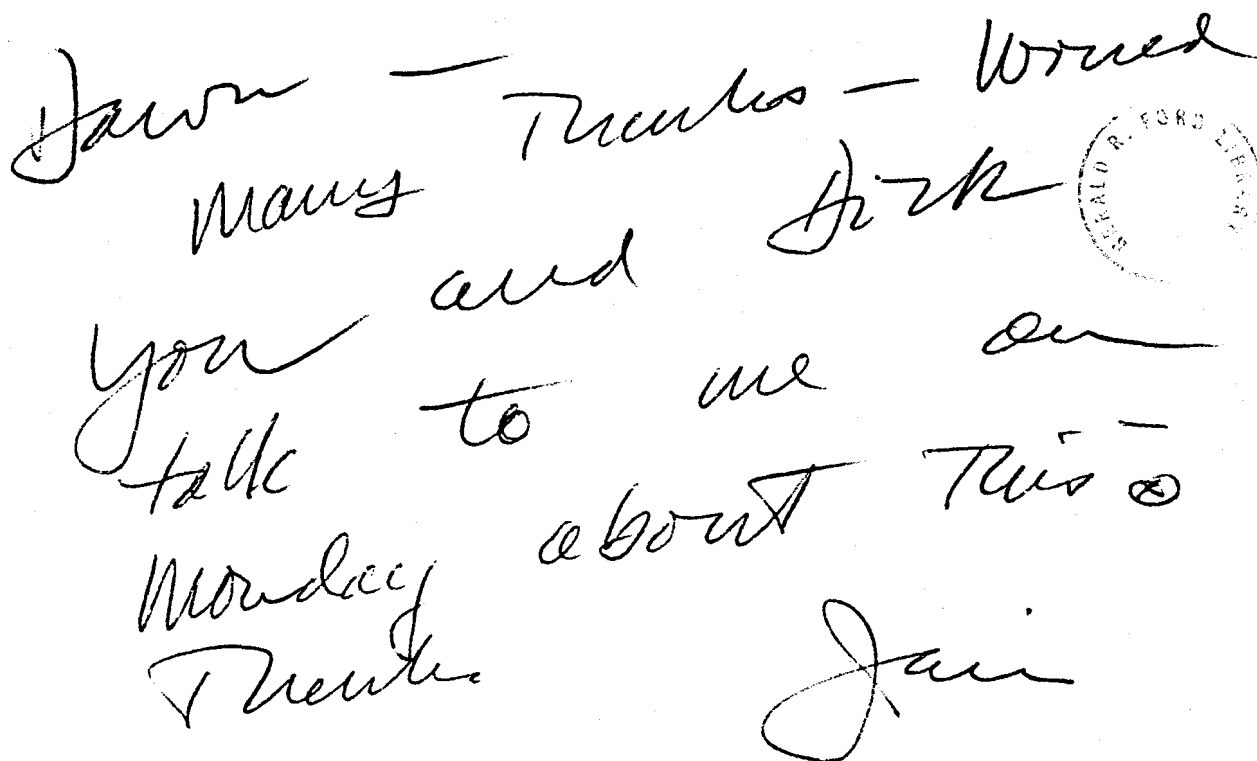 Dawn —
Many Thanks — Would
you and Dick
talk to me on
Monday about This —
Thanks.
GERALD R. FORD LIBRARY